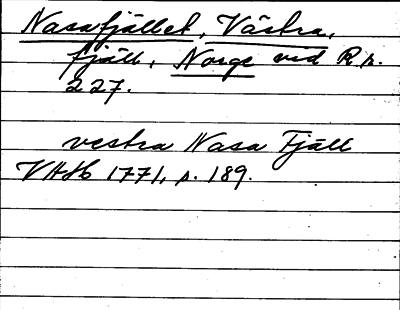 Nasafjället, Västra,
fjäll, Norge vid R r.
227.
vestra Nasa Fjäll
VAH 1771, s. 189.